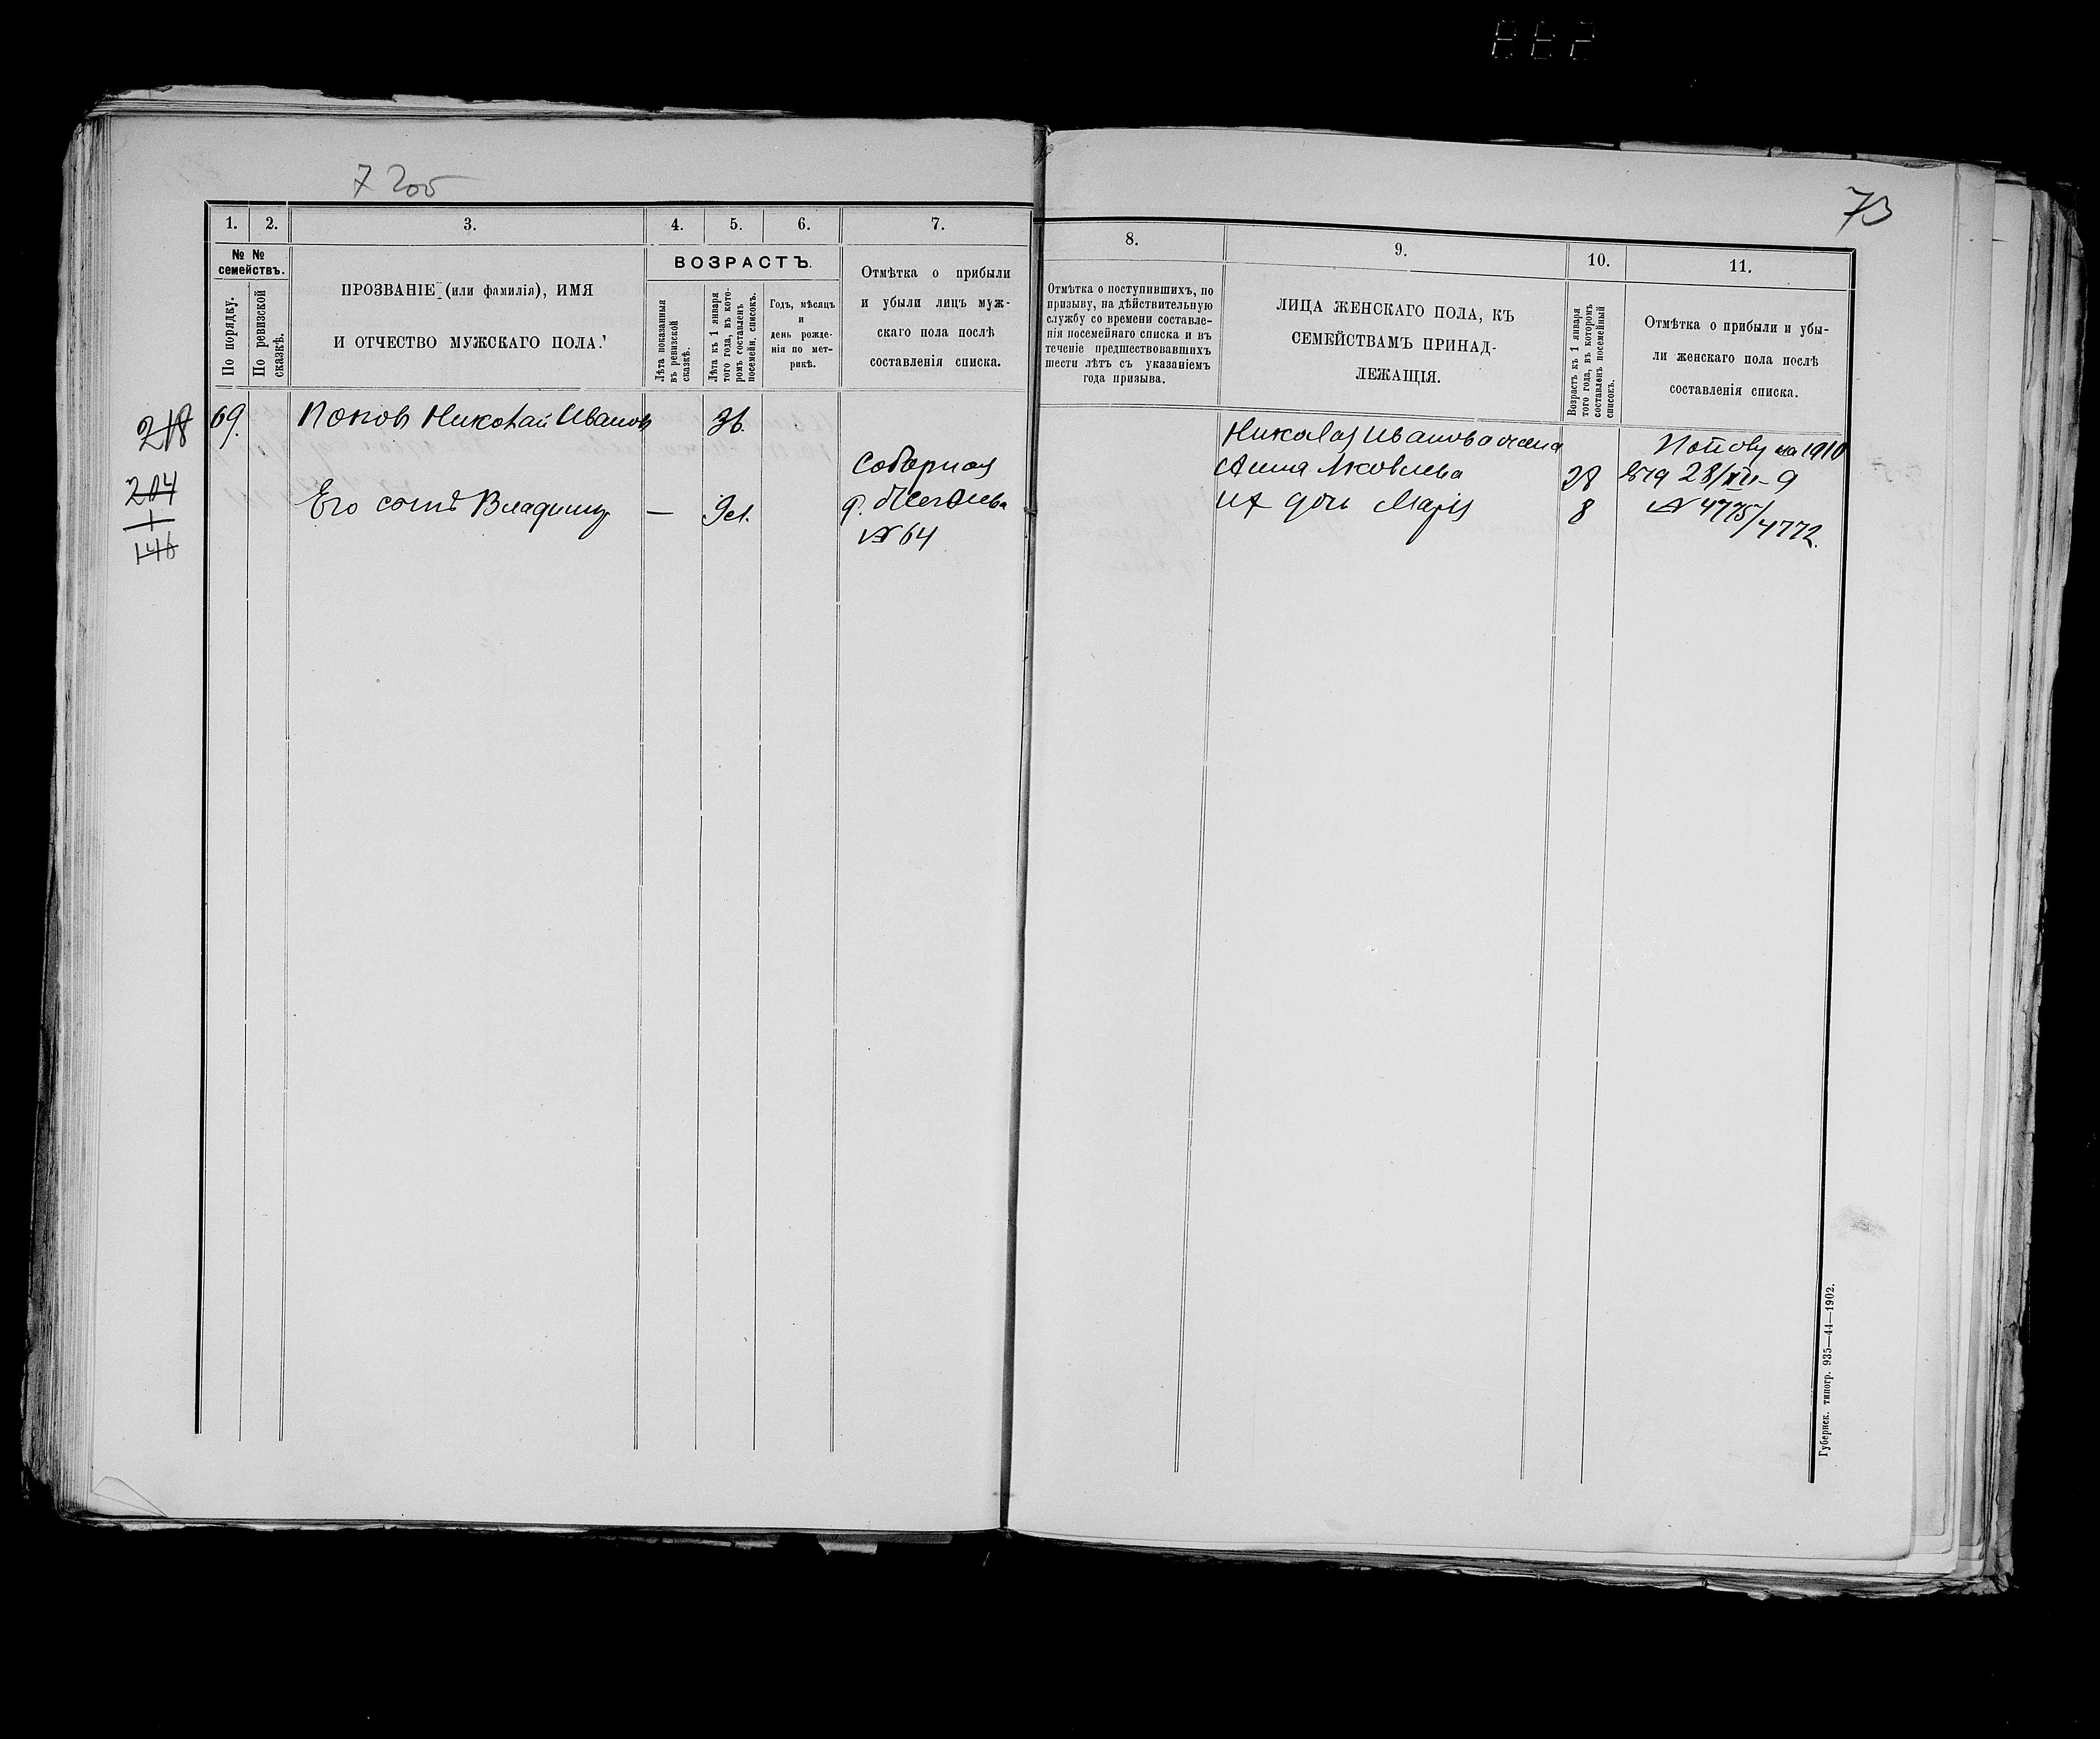 7 205
73
1.
2.
3.
4.
5.
6.
7.
8.
9.
10.
11.
№ №
семействъ.
По порядку.
По ревизской
сказкѣ.
ПРОЗВАНІЕ (или фамилія), ИМЯ
И ОТЧЕСТВО МУЖСКАГО ПОЛА.
ВОЗРАСТЪ.
Лѣта показанныя
въ ревизской
сказкѣ.
Лѣта къ 1 января
того года, въ кото-
ромъ составленъ
посемейн. списокъ.
Годъ, мѣсяцъ
и
день рожде-
нія по мет-
рикѣ.
Отмѣтка о прибыли
и убыли лицъ муж-
скаго пола послѣ
составленія списка.
Отмѣтка о поступившихъ, по
призыву, на дѣйствительную
службу со времени составле-
нія посемейнаго списка и въ
теченіе предшествовавшихъ
шести лѣтъ съ указаніемъ
года призыва.
ЛИЦА ЖЕНСКАГО ПОЛА, КЪ
СЕМЕЙСТВАМЪ ПРИНАД-
ЛЕЖАЩІЯ.
Возрастъ къ 1 января
того года, въ которомъ
составленъ посемейный
списокъ.
Отмѣтка о прибыли и убы-
ли женскаго пола послѣ
составленія списка.
218
204
146
69.
Поповъ Николай Ивановъ
Его сынъ Владимiръ —
Соборная
д.
№ 64
Николая Иванова жена
Анна Яковлева 28
их дочь Марiя 8
Попову на 1910
28/XII-9
№ 4775/4772.
Губернск. типогр. 935—44—1902.